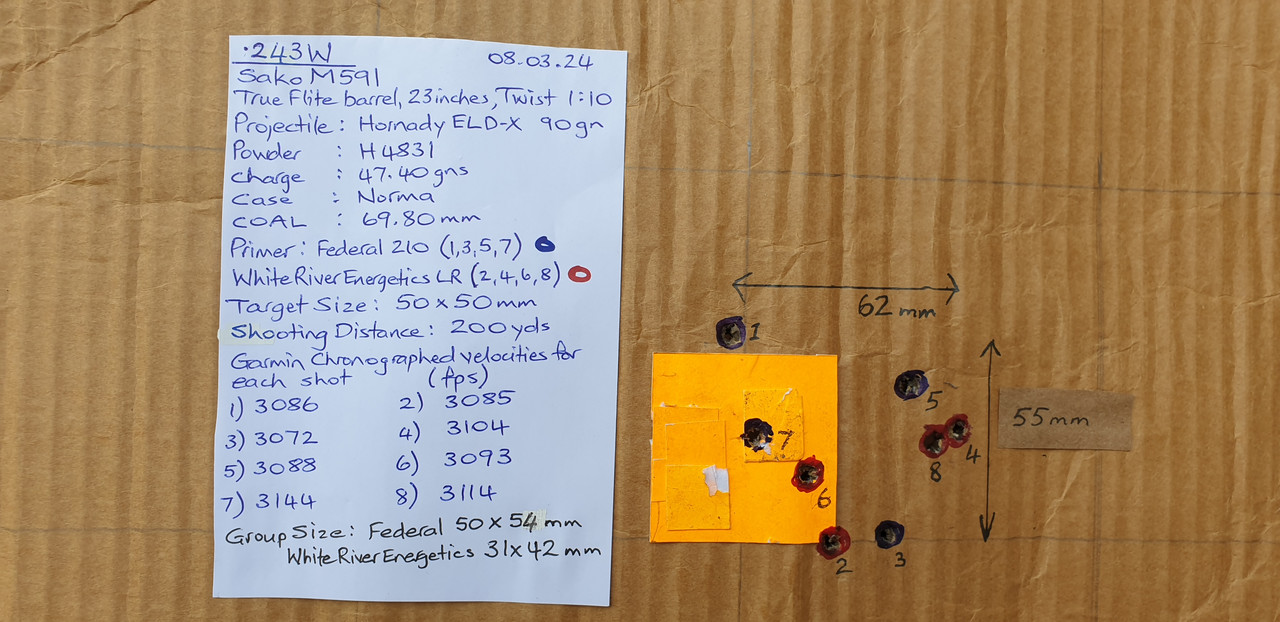 .243W
08.03.24
Sako M591
True Flite barrel, 23inches, Twist 1:10
Projectile: Hornady ELD-X 90gn
Powder : H4831
Charge : 47.40gns
Case : Norma
COAL : 69.80mm
Primer: Federal 210 (1,3,5,7)
White River Energetics LR (2,4,6,8)
Target Size: 50x50mm
Shooting Distance: 200yds
Garmin Chronographed velocities for
each shot (fps)
1) 3086 2) 3085
3) 3072 4) 3104
5) 3088 6) 3093
7) 3144 8) 3114
Group Size: Federal 50x54mm
White River Energetics 31x42mm
62mm
1
5
55mm
7
4
8
6
2
3